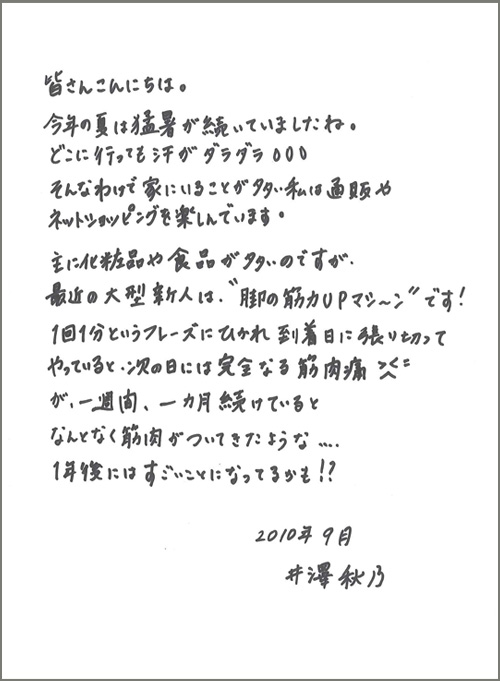 皆さんこんにちは。
今年の夏は猛暑が続いていましたね。
どこに行っても汗がダラダラ000
そんなわけで家にいることが多い私は通販や
ネットショッピングを楽しんでいます。
主に化粧品や食品が多いのですが、
最近の大型新人は、“脚の筋力UPマシ〜ン”です!
1回1分というフレーズにひかれ到着日に張り切って
やっていると、次の日には完全なる筋肉痛
が、一週間、一カ月続けていると
なんとなく筋肉がついてきたような....
1年後にはすごいことになってるかも!?
2010年9月
井澤秋乃